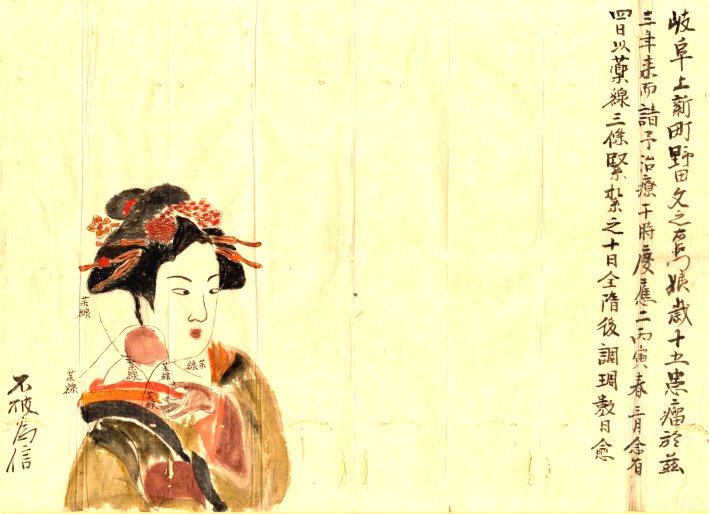 岐阜上新町野田文之右馬娘歳十五患瘤於茲
三年来而請予治療于時慶應二丙寅春三月念有
四日以薬線三條緊紮之十日全堕後調理数日愈
薬線
薬線
薬線
薬線
薬線
薬線
不破為信